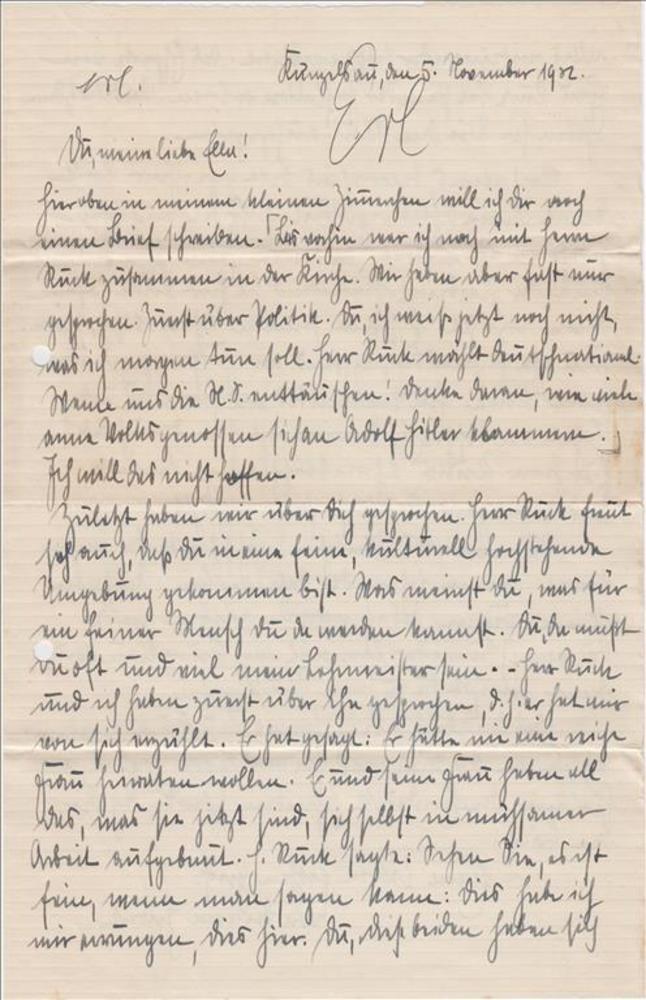 erl.
Künzelsau, den 5. November 1932.
Erl
Du, meine liebe Ella!
Hier oben in meinem kleinen Zimmerchen will ich dir noch
einen Brief schreiben. Bis vorhin war ich noch mit Herrn
Ruck zusammen in der Kirche. Wir haben aber fast nur
gesprochen. Zuerst über Politik. Du, ich weiß jetzt noch nicht,
was ich morgen tun soll. Herr Ruck wählt deutschnational.
Wenn uns die N.S. enttäuschen! Denke daran, wie viele
arme Volksgenossen sich an Adolf Hitler klammern.
Ich will das nicht hoffen.
Zuletzt haben wir über dich gesprochen. Herr Ruck freut
sich auch, daß du in eine feine, kulturell hochstehende
Umgebung gekommen bist. Was meinst du, was für
ein feiner Mensch du da werden kannst. Du, da mußt
du oft und viel mein Lehrmeister sein. - Herr Ruck
und ich haben zuerst über Ihn gesprochen, d.h. er hat mir
von sich erzählt. Er hat gesagt: Er hätte nie eine reiche
Frau heiraten wollen. Er und seine Frau haben all
das, was sie jetzt sind, sich selbst in mühsamer
Arbeit aufgebaut. H. Ruck sagte: Sehen Sie, es ist
fein, wenn man sagen kann: Dies habe ich
mir errungen, dies hier. Du, diese beiden haben sich